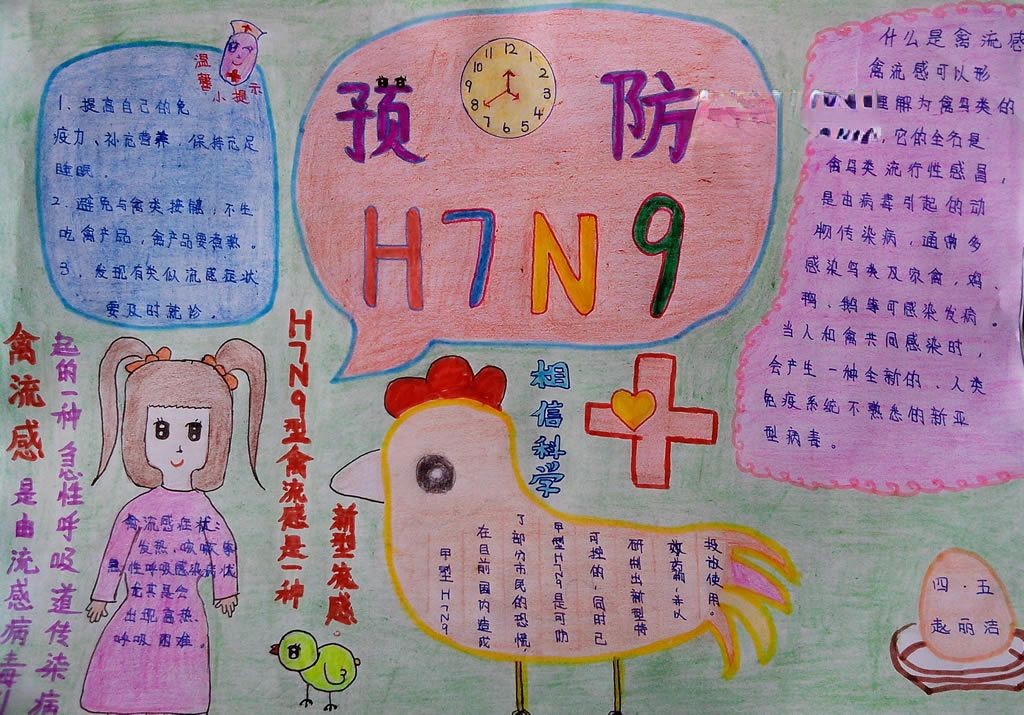 温馨
小提示
1、提高自己的免
疫力、补充营养，保持充足
睡眠。
2、避免与禽类接触，不生
吃禽产品，禽产品要煮熟。
3、发现有类似流感症状
要及时就诊。
12
1
2
3
4
5
6
7
8
9
10
11
预 防
H7N9
什么是禽流感
禽流感可以形
理解为禽鸟类的
，它的全名是
禽鸟类流行性感冒，
是由病毒引起的动
物传染病，通常多
感染鸟类及家禽，鸡、
鸭、鹅等可感染发病。
当人和禽共同感染时，
会产生一种全新的、人类
免疫系统不熟悉的新亚
型病毒。
禽流感是由流感病毒引
起的一种急性呼吸道传染病
禽流感症状：
发热、咳嗽等
急性呼吸感染症状
尤其是会
出现高热、
呼吸困难。
H7N9型禽流感是一种
新型流感。
相信科学
甲型H7N9
在目前国内造成
了部分市民的恐慌，
甲型H7N9是可防
可控的，同田已
研制出新型特
效药，并头
投放使用。
四·五
赵丽洁